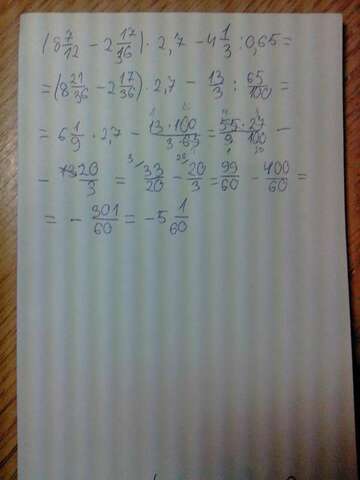 (8 7/12 - 2 17/36) · 2,7 - 4 1/3 : 0,65 =
= (8 21/36 - 2 17/36) · 2,7 - 13/3 : 65/100 =
= 6 1/9 · 2,7 - 13·100/3·65 = 55·27/9·100 -
- 20/3 = 33/20 - 20/3 = 99/60 - 400/60 =
= - 301/60 = -5 1/60